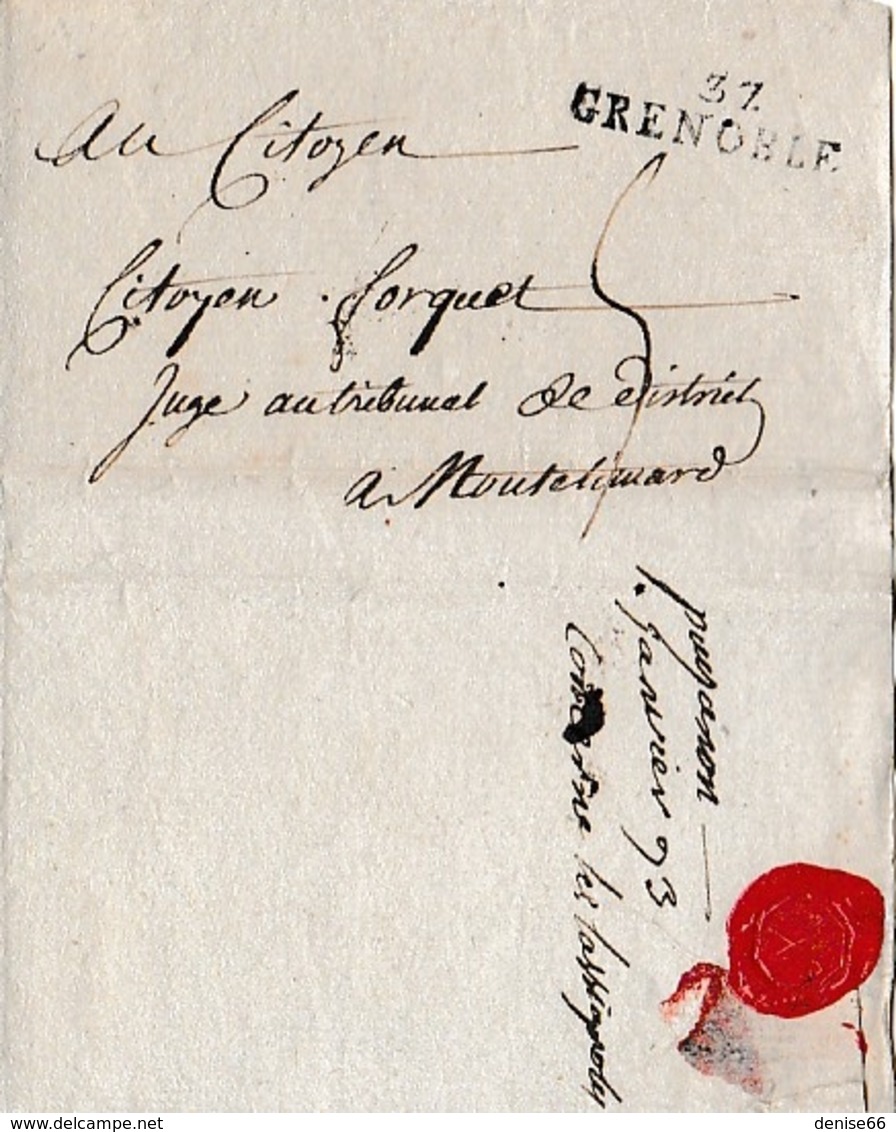 37
GRENOBLE
Au Citoyen
Citoyen Sorquet
Juge au tribunal de district
a Montelimard
5
puyanon
1. Janvier 93
Concerne les
denise66